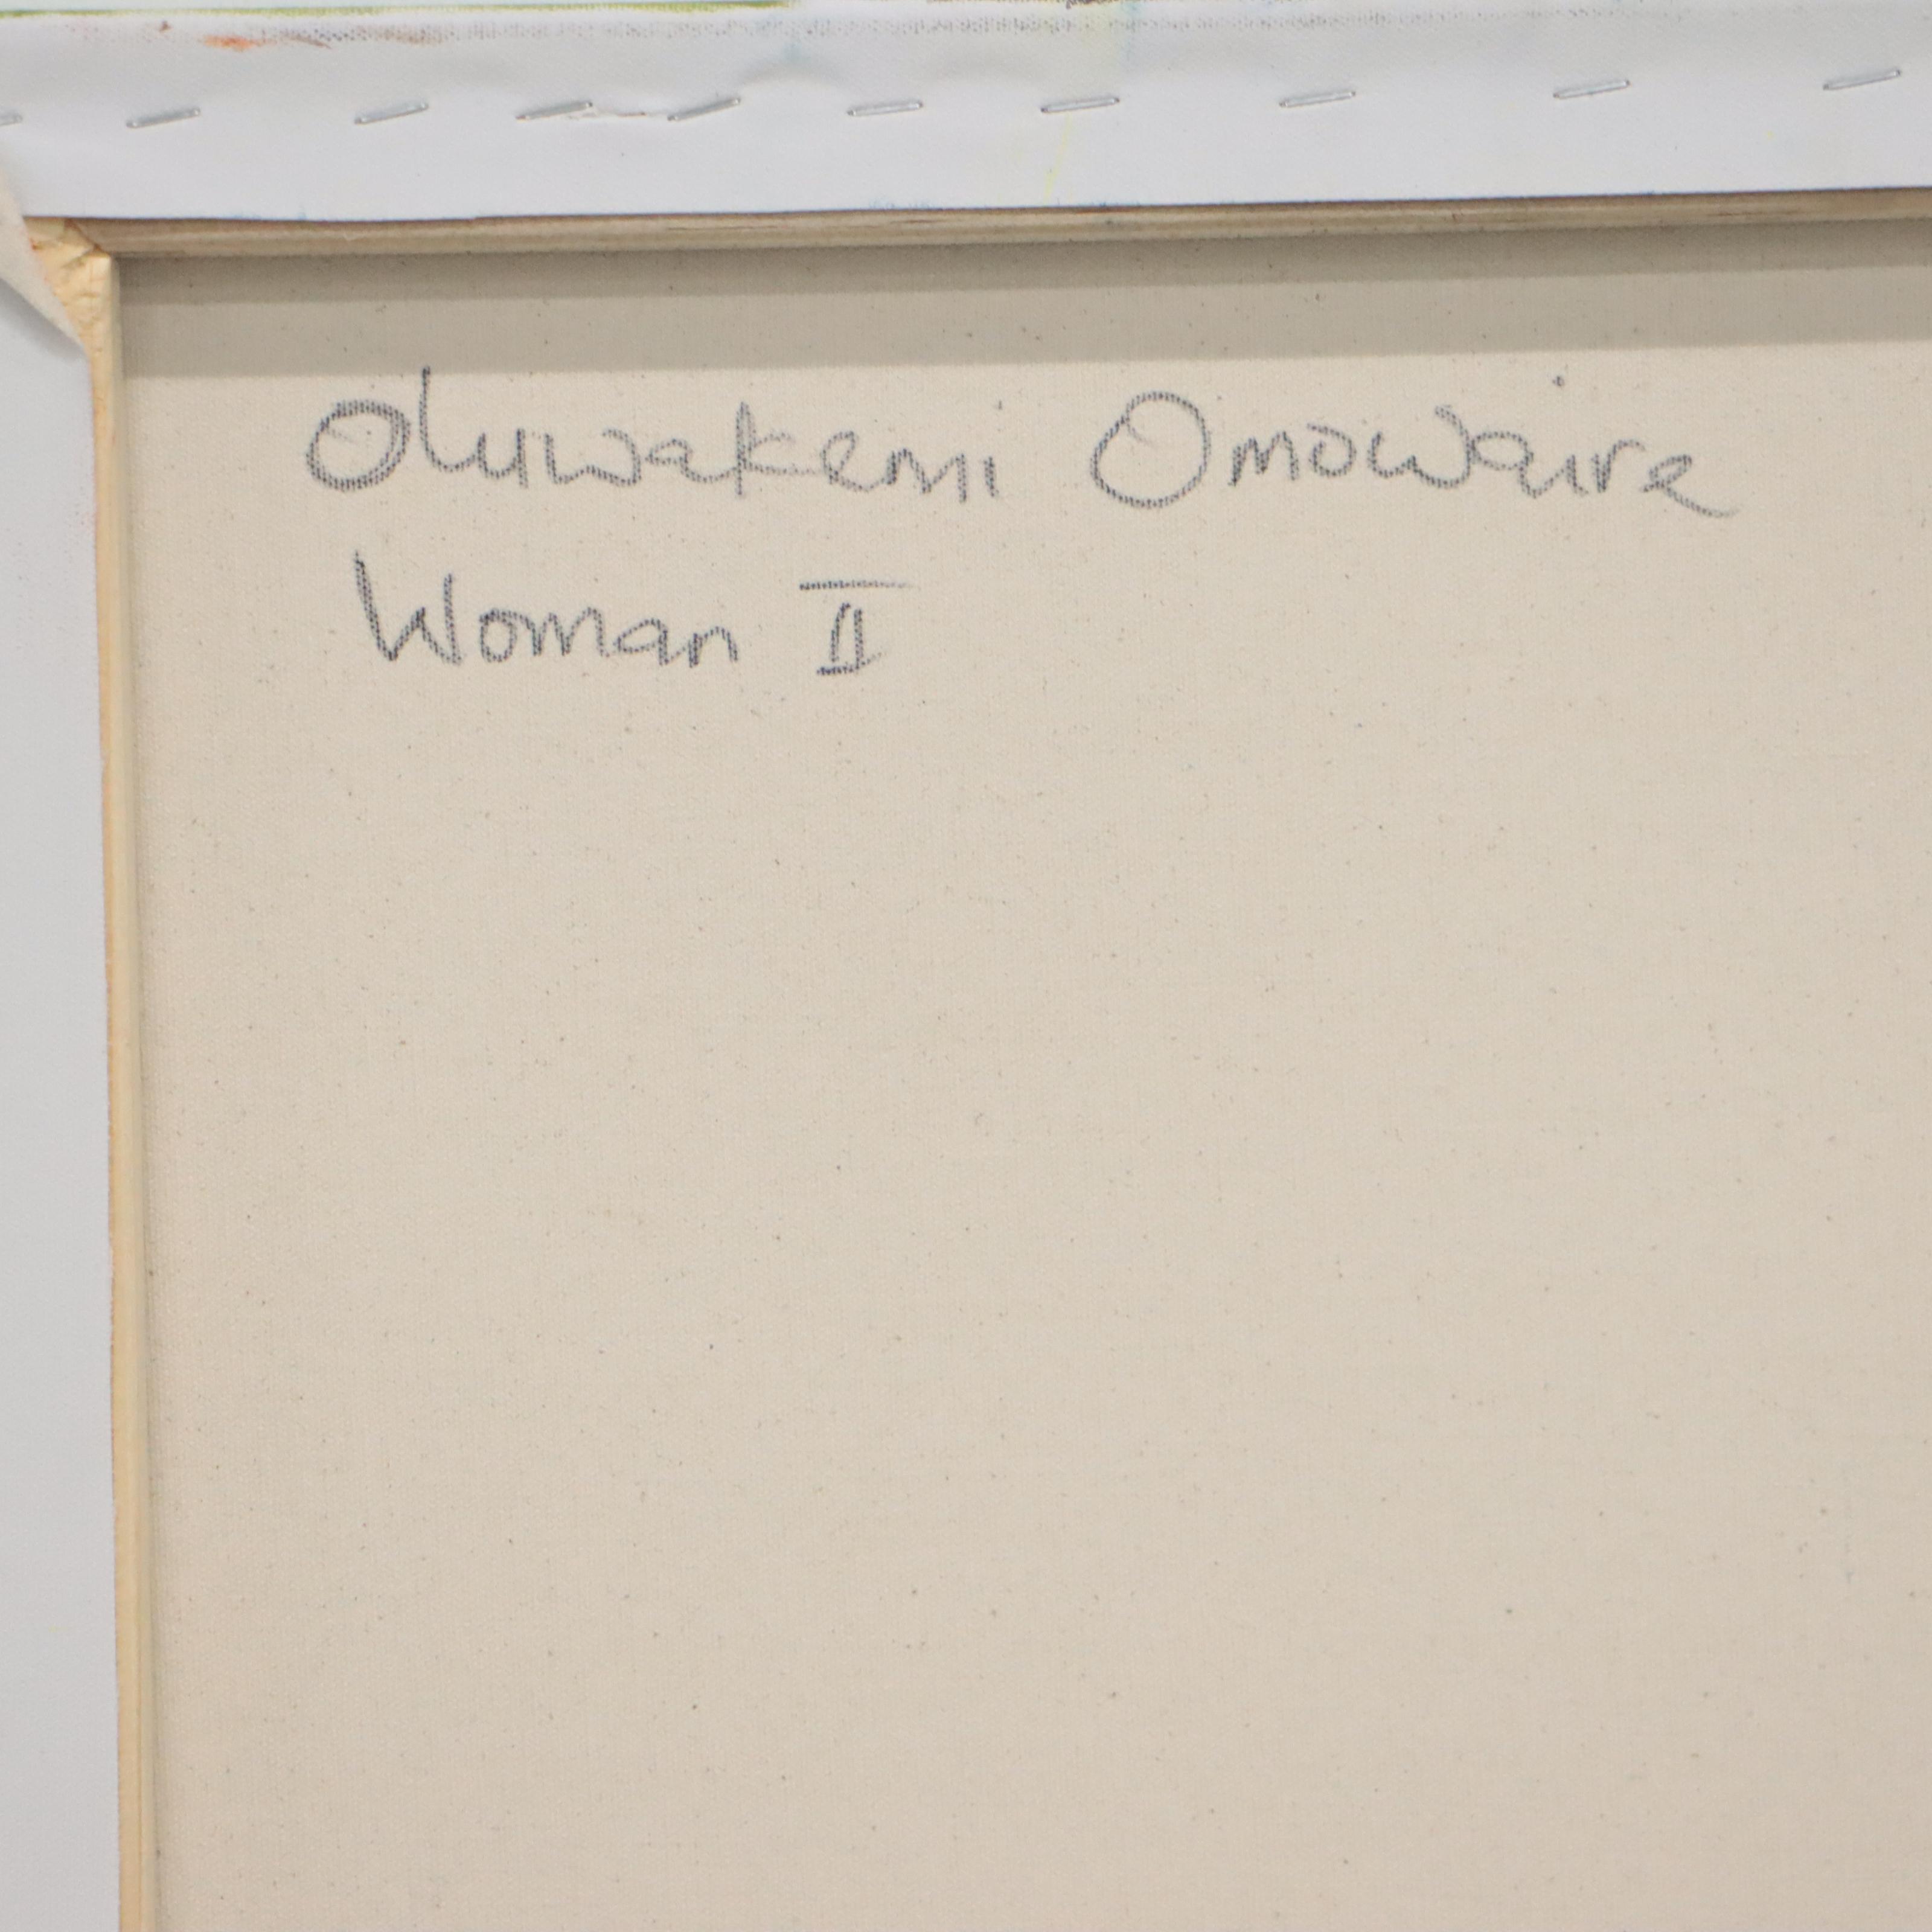 Oluwakemi Omowaire
Woman II